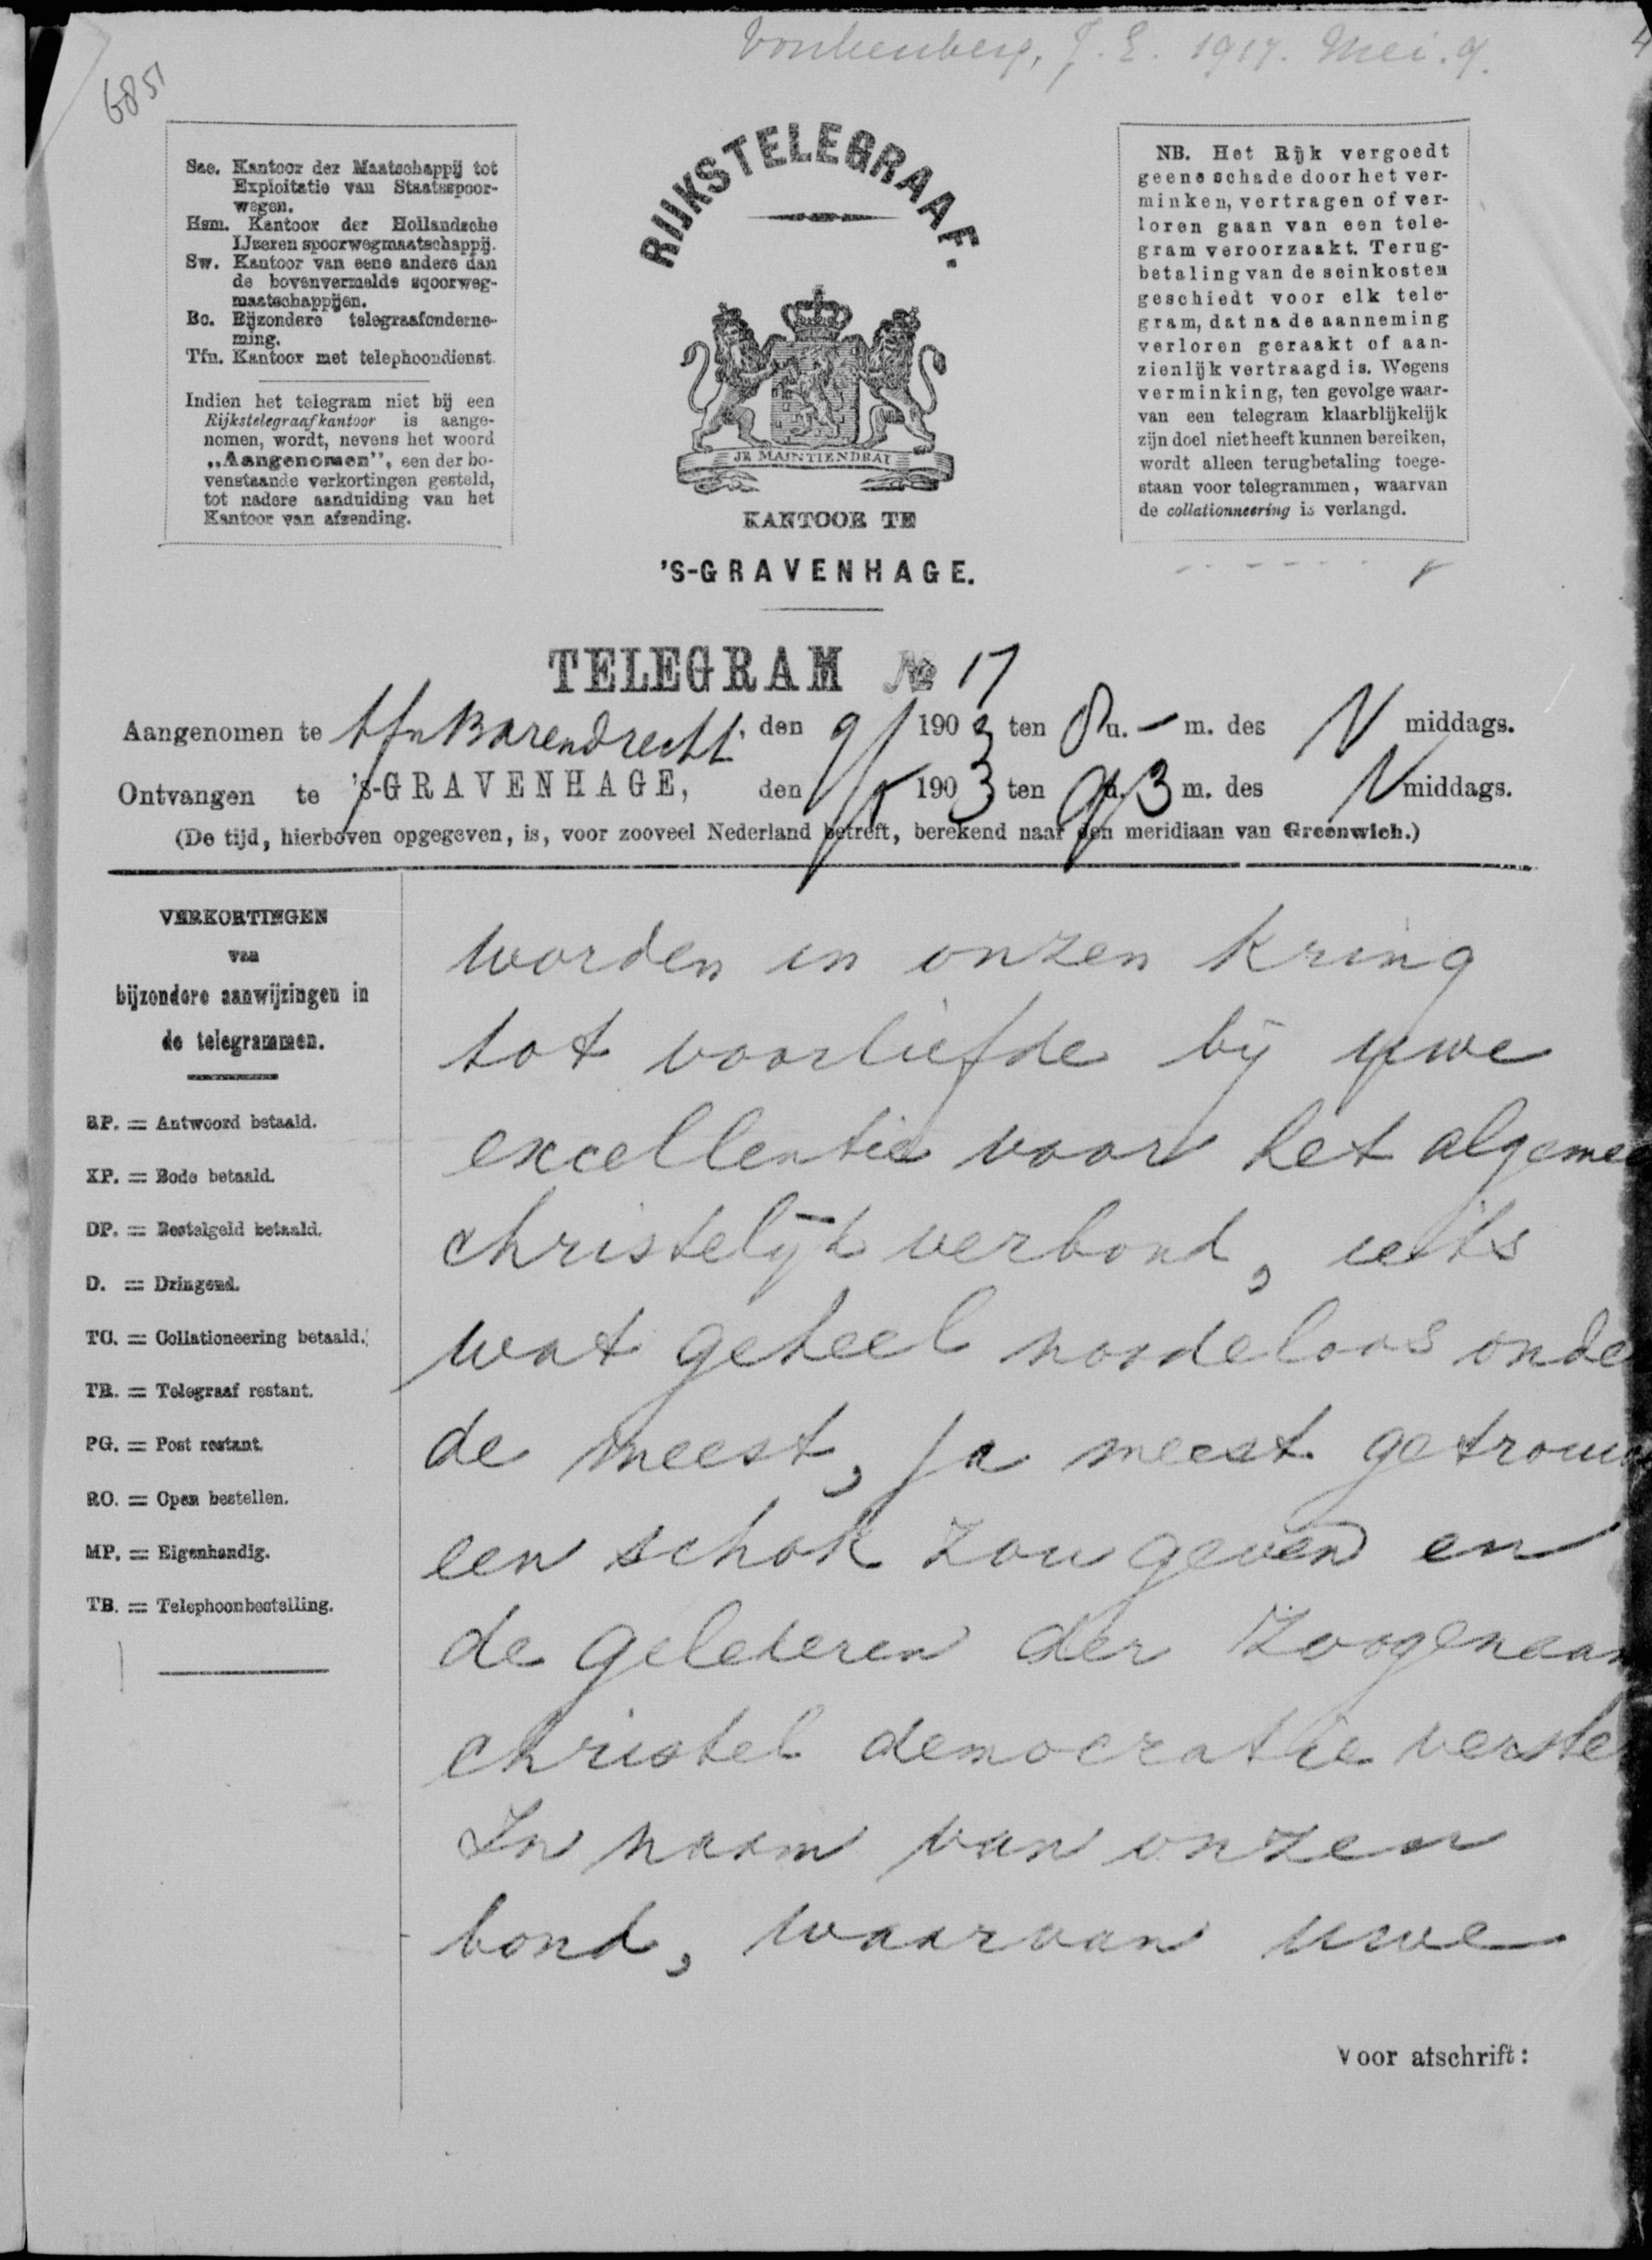 Vonkenberg, J. E. 1917. Mei. 9.
6851
Sae. Kantoor der Maatschappij tot
Exploitatie van Staatsspoor-
wegen.
Hsm. Kantoor der Hollandsche
IJzeren spoorwegmaatschappij.
Sw. Kantoor van eene andere dan
de bovenvermelde sqoorweg-
maatschappijen.
Bo. Bijzondere telegraafonderne-
ming.
Tfn. Kantoor met telephoondienst.
Indien het telegram niet bij een
Rijkstelegraafkantoor is aange-
nomen, wordt, nevens het woord
„Aangenomen”, een der bo-
venstaande verkortingen gesteld,
tot nadere aanduiding van het
Kantoor van afzending.
RIJKSTELEGRAAF.
JE MAINTIENDRAI
KANTOOR TE
'S-GRAVENHAGE.
NB. Het Rijk vergoedt
geene schade door het ver-
minken, vertragen of ver-
loren gaan van een tele-
gram veroorzaakt. Terug-
betaling van de seinkosten
geschiedt voor elk tele-
gram, dat na de aanneming
verloren geraakt of aan-
zienlijk vertraagd is. Wegens
verminking, ten gevolge waar-
van een telegram klaarblijkelijk
zijn doel niet heeft kunnen bereiken,
wordt alleen terugbetaling toege-
staan voor telegrammen, waarvan
de collationneering is verlangd.
TELEGRAM № 17
Aangenomen te tfn Barendrecht, den 9/ 1903 ten 8 u. - m. des N middags.
Ontvangen te 's-GRAVENHAGE, den 9/5 1903 ten 9 u. 3 m. des N middags.
(De tijd, hierboven opgegeven, is, voor zooveel Nederland betreft, berekend naar den meridiaan van Greenwich.)
VERKORTINGEN
van
bijzondere aanwijzingen in
de telegrammen.
RP. = Antwoord betaald.
XP. = Bode betaald.
DP. = Bestelgeld betaald.
D. = Dringend.
TC. = Collationeering betaald.
TR. = Telegraaf restant.
PG. = Post restant.
RO. = Open bestellen.
MP. = Eigenhandig.
TB. = Telephoonbestelling.
worden in onzen kring
tot voorliefde bij uwe
excellentie voor het algemee
christelijk verbond, iets
wat geheel noodeloos onde
de meest, ja meest getrouw
een schok zou geven en
de gelederen der zoogenaam
christel democratie verste
In naam van onzen
bond, waarvan uwe
Voor afschrift: